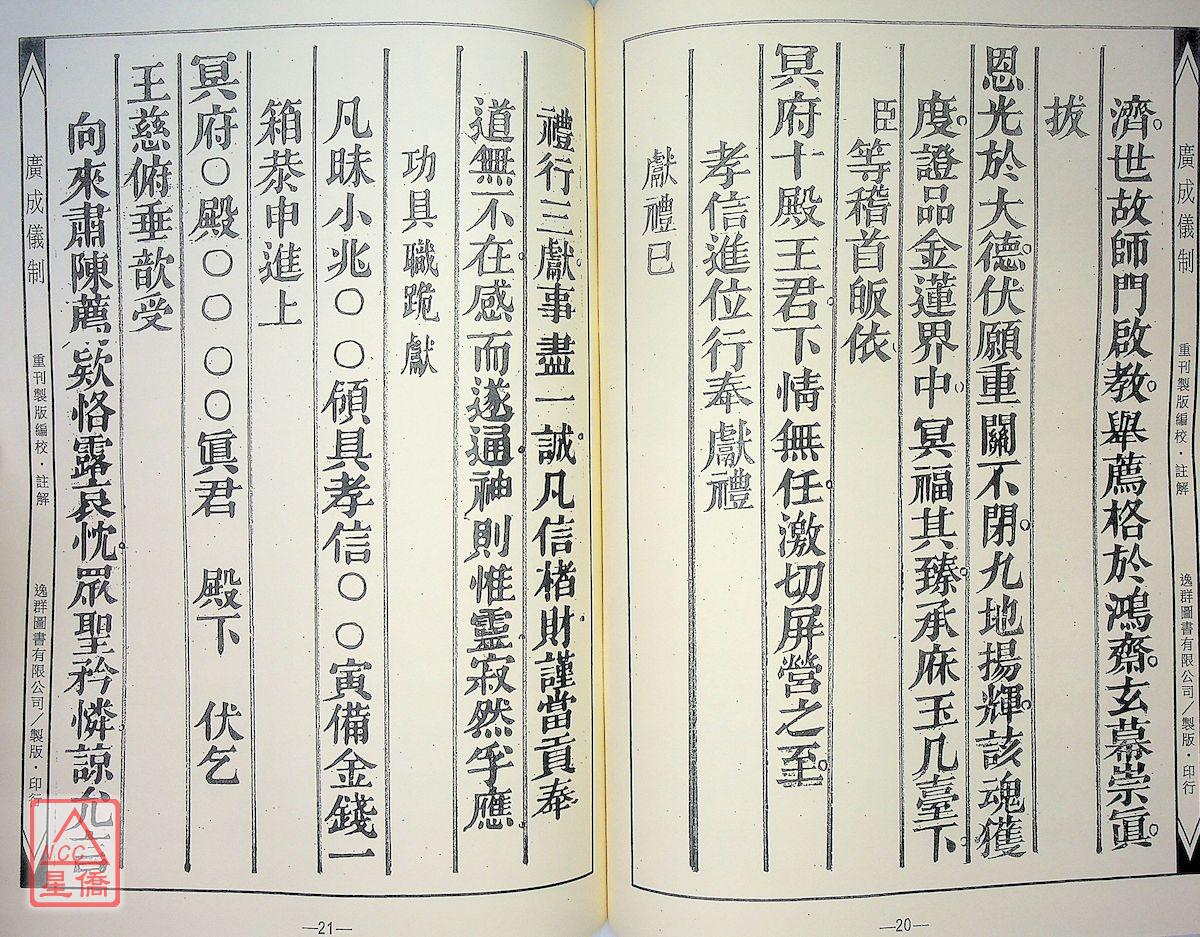 廣成儀制
重刊製版編校・註解
逸群圖書有限公司／製版・印行
濟世故師門啟教。舉薦格於鴻齋。玄幕崇眞。
拔
恩光於大德。伏願重關不閉。九地揚輝。該魂獲
度。證品金蓮界中。冥福其臻。承庥玉几臺下。
臣等稽首皈依
冥府十殿王君。下情無任。激切屏營之至。
孝信進位行奉獻禮
獻禮已
—20—
禮行三獻。事盡一誠。凡信楮財。謹當貢奉
道無不在。感而遂通。神則惟靈。寂然孚應。
功具職跪獻
凡昧小兆〇〇領具孝信〇〇寅備金錢一
箱恭申進上
冥府〇殿〇〇〇〇眞君　殿下　伏乞
王慈俯垂歆受
向來肅陳薦歀。恪露哀忱。眾聖矜憐。諒允
—21—
廣成儀制
重刊製版編校・註解
逸群圖書有限公司／製版・印行
N.C.C
星僑